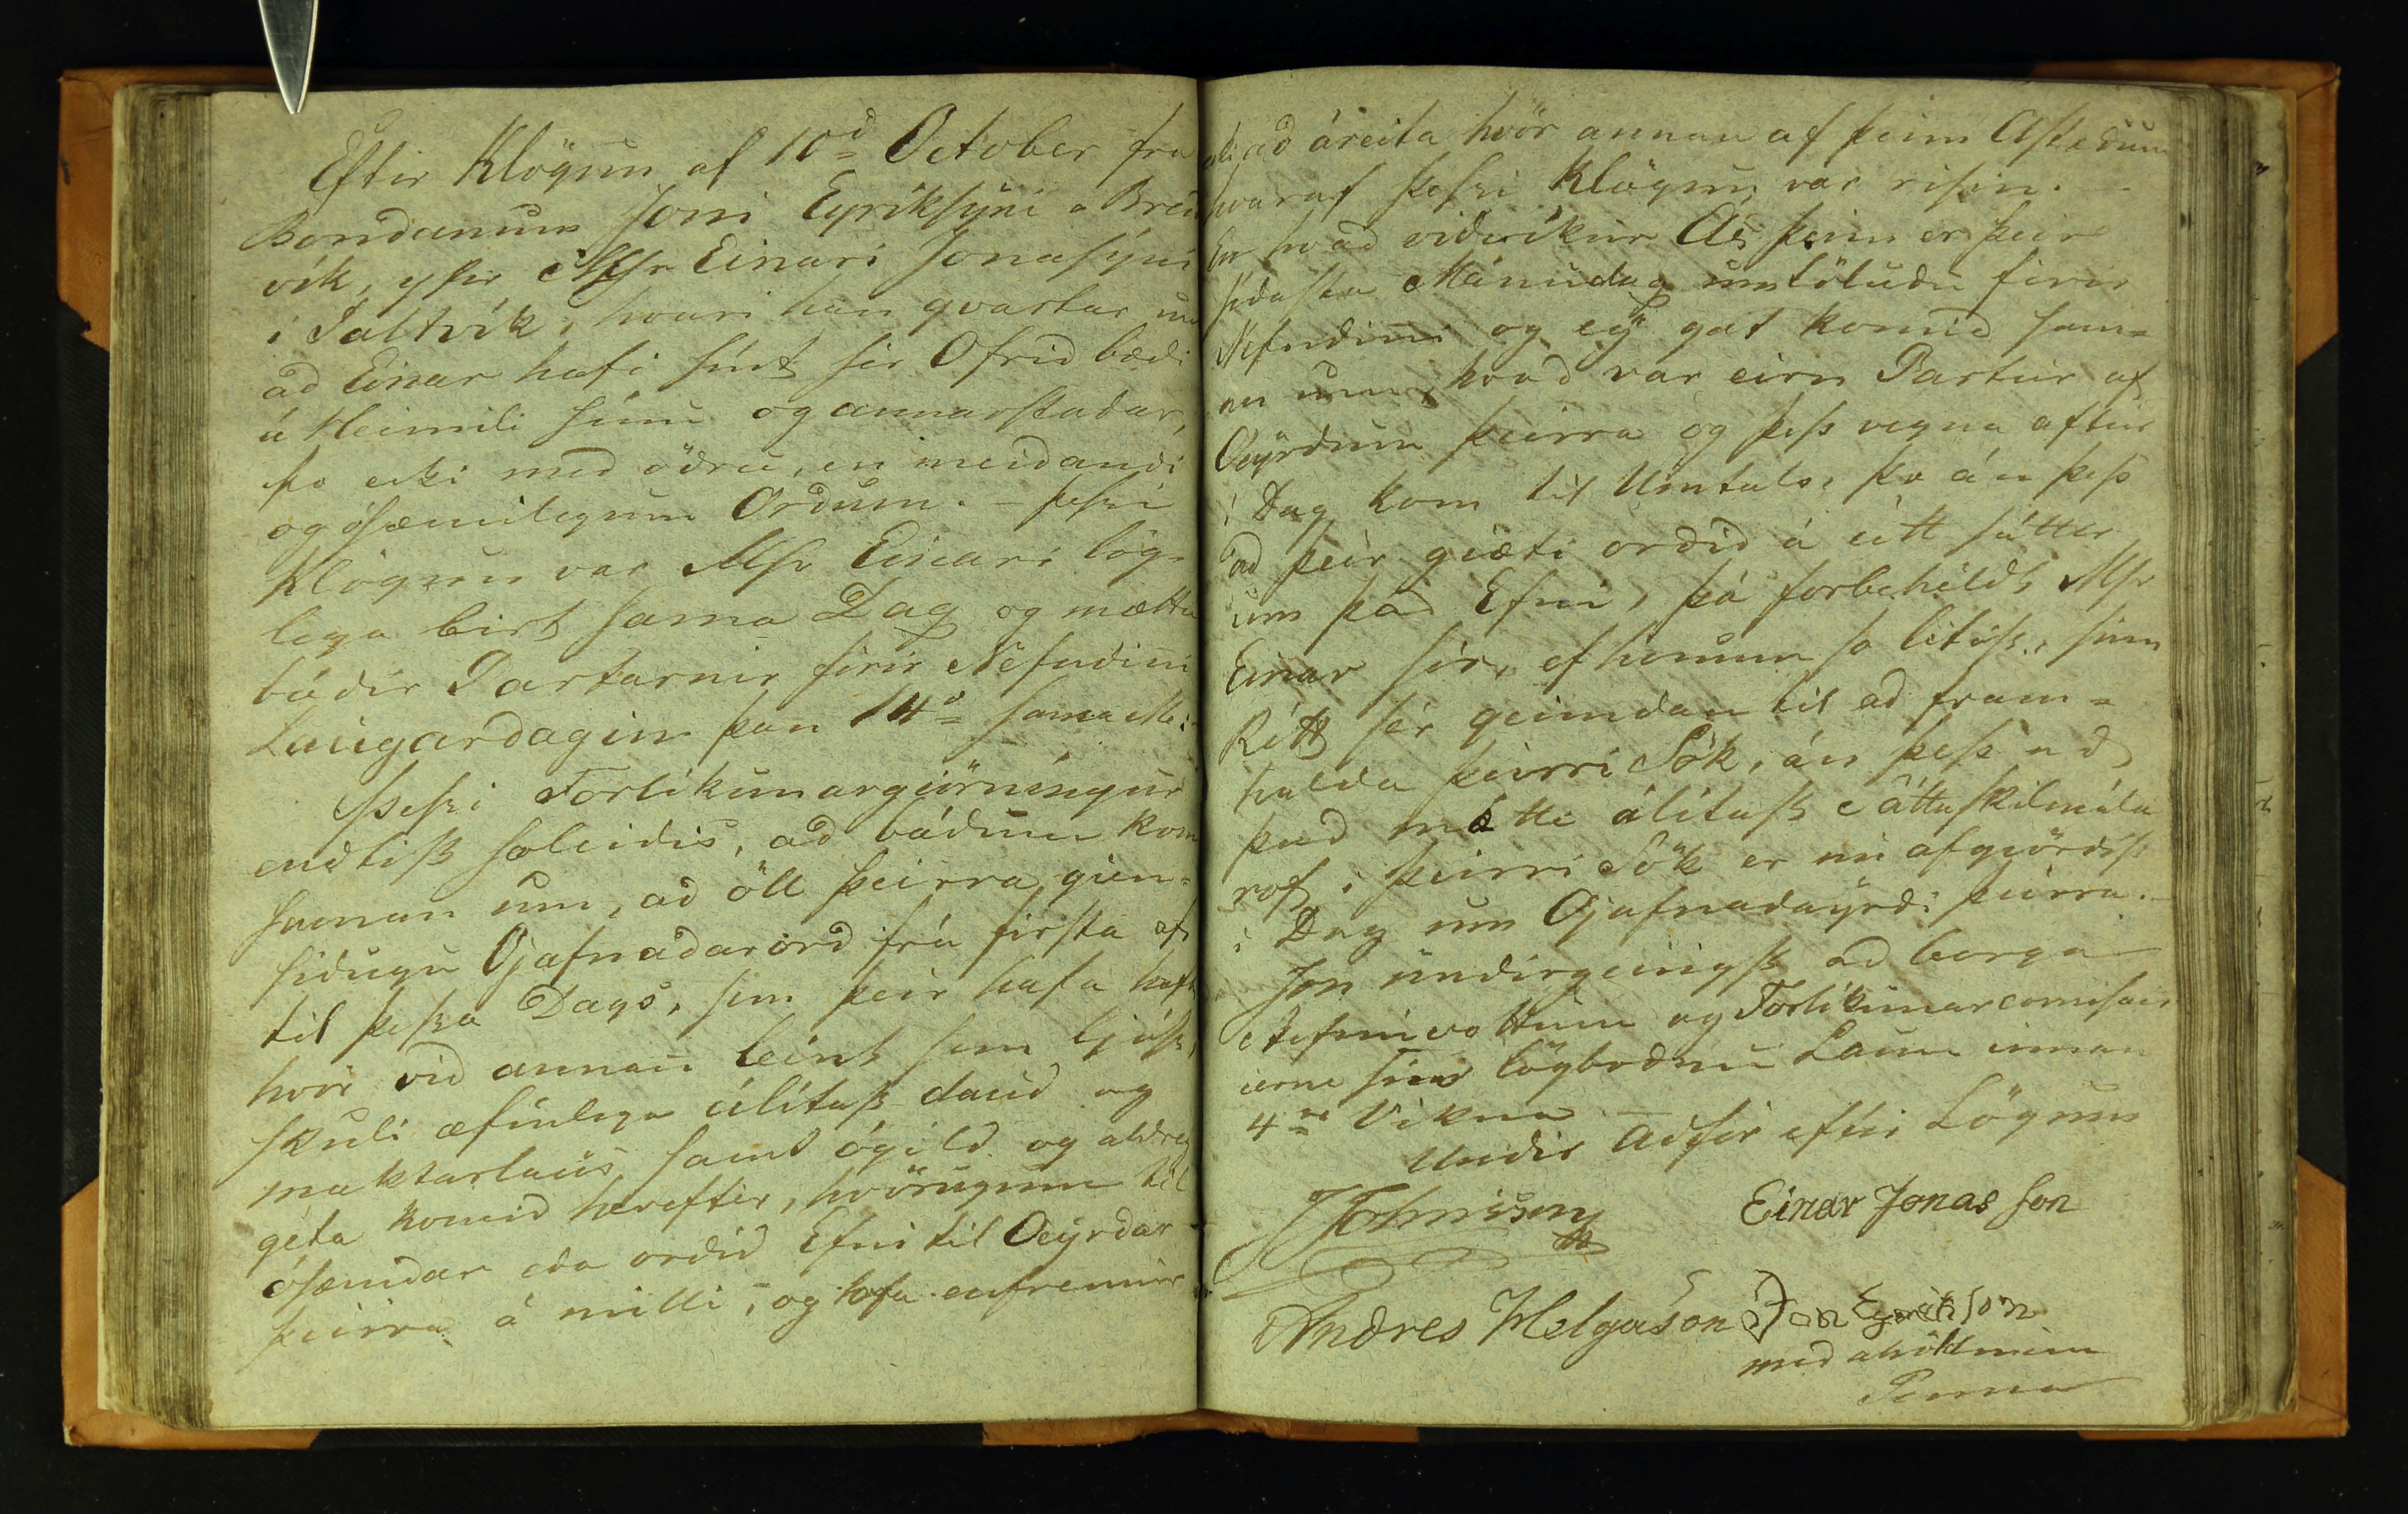 Eftir Klögun af 10d October fra
Bondanum Joni Eyriksÿni a Breid
vík, yfir Msr Einari Jonasÿni
i Saltvík, hvari han qvartar um
ad Einar hafi sínt sér Ofrid bædi
á Heimili sínu og annarstadar,
þo ecki med ödru, en meidandi
og ósæmilegum Ordum. - þessi
Klögun var Msr Einari lög-
lega birt sama Dag og mættu
bádir Partarnir firir Nefndinni
Laugardagin þan 14da sama M:
Þessi Forlikunargiörníngur
endtist soleidis, ad bádum kom
saman um, ad öll þeirra gien-
sidugu Ojafnadarord frá firsta af
til þessa Dags, sem þeir hafa haft
hvör vid annan leint sem ljóst,
skuli æfinlega álitast daud og
maktarlaus, samt ógild og aldrei
geta komid hereftir, hvörugum til
ósæmdar eda ordid Efni til Oÿrdar
þeirra á milli, og hafa enfremur
ecki ad áreita hvör annan af þeim Astædum
hvaraf þessi Klögun var risin. -
En hvad vidvíkur Ás þeim er þeir
sídasta Mánudag umtöludu firir
Nefndinni og eÿ gat komid sam-
an um, hvad var eirn Partur af
Oÿrdum þeirra og þess vegna aftur
i Dag kom til Umtals, þo án þess
ad þeir giæti ordid á eitt sátter
um þad Efni, þá forbeheldt Msr
Einar sér, ef honum so litist, sinn
Rétt sér geimdan til ad fram-
halda þeirri Sök, án þess ad
þad mætti álítast Sáttaskilmála
rof, i þeirri Sök er nú afgiördist
i Dag um Ojafnadaÿrdi þeirra. -
Jon undirgeingst ad borga
Stefnuvottum og Forlikunarcomisari
erne sín lögbodnu Laun innan
4ra Vikna -
Undir Adför eftir Lögum
JJohnsson
Einar Jonas son
Andres Helgason
Jon Eyrikson
med áhöldnum
Penna